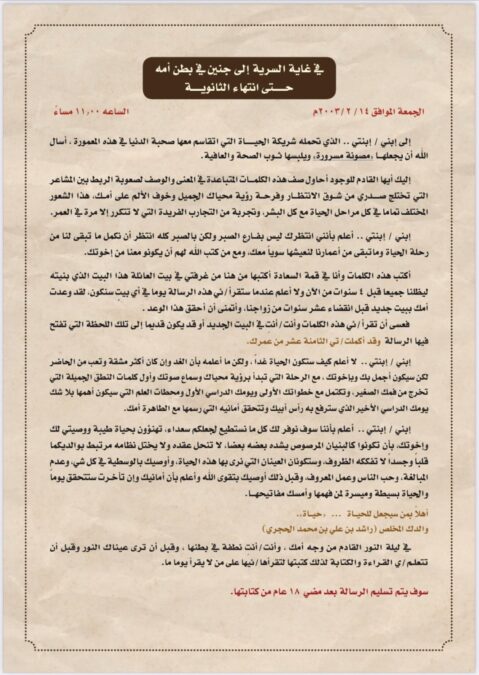 في غاية السرية إلى جنين في بطن أمه
حـــتى انتهاء الثانويــــة
الجمعة الموافق ١٤ / ٢ / ٢٠٠٣م
الساعه ١١,٠٠ مساءً
إلى إبني / إبنتي .. الذي تحمله شريكة الحياة التي اتقاسم معها صحبة الدنيا في هذه المعمورة ، أسال
الله أن يجعلها ،مصونة مسرورة، ويلبسها ثوب الصحة والعافية.
إليك أيها القادم للوجود أحاول صف هذه الكلمات المتباعدة في المعنى والوصف لصعوبة الربط بين المشاعر
التي تختلج صدري من شوق الانتظار وفرحة رؤية محياك الجميل وخوف الألم على أمك، هذا الشعور
المختلف تماما في كل مراحل الحياة مع كل البشر، وتجربة من التجارب الفريدة التي لا تتكرر إلا مرة في العمر.
إبني / إبنتي .. أعلم بأنني انتظرك ليس بفارع الصبر ولكن بالصبر كله انتظر أن نكمل ما تبقى لنا من
رحلة الحياة وماتبقى من أعمارنا لنعيشها سوياً معك، ومع من كتب الله لهم أن يكونو معنا من إخوتك.
أكتب هذه الكلمات وأنا في قمة السعادة أكتبها من هنا من غرفتي في بيت العائلة هذا البيت الذي بنيته
ليظلنا جميعا قبل ٤ سنوات من الآن ولا أعلم عندما ستقرأ / ني هذه الرسالة يوما في أي بيت سنكون، لقد وعدت
أمك ببيت جديد قبل انقضاء عشر سنوات من زواجنا، وأتمنى أن أحقق هذا الوعد .
فعسى أن تقرأ / ني هذه الكلمات وأنت/ أنت في البيت الجديد أو قد يكون قديما إلى تلك اللحظة التي تفتح
فيها الرسالة وقد أكملت/ تي الثامنة عشر من عمرك.
إبني / إبنتي .. لا أعلم كيف ستكون الحياة غداً ، ولكن ما أعلمه بأن الغد وإن كان أكثر مشقة وتعب من الحاضر
لكن سيكون أجمل بك وبإخوتك. ، مع الرحلة التي تبدأ برؤية محياك وسماع صوتك وأول كلمات النطق الجميلة التي
تخرج من فمك الصغير، وتكتمل مع خطواتك الأولى ويومك الدراسي الأول ومحطات العلم التي سيكون أهمها بلا شك
يومك الدراسي الأخير الذي سترفع به رأس أبيك وتتحقق أمانيه التي رسمها مع الطاهرة أمك.
إبني / إبنتي .. أعلم بأننا سوف نوفر لك كل ما نستطيع لجعلكم سعداء، تهنؤون بحياة طيبة ووصيتي لك
وإخوتك، بأن تكونوا كالبنيان المرصوص يشده بعضه بعضا، لا تنحل عقده ولا يختل نظامه مرتبط بوالديكما
قلباً وجسدا لا تفككه الظروف، وستكونان العينان التي نرى بها هذه الحياة، وأوصيك بالوسطية في كل شي، وعدم
المبالغة، وحب الناس وعمل المعروف، وقبل ذلك أوصيك بتقوى الله وأعلم بأن أمانيك وإن تأخرت ستتحقق يوماً
والحياة بسيطة وميسرة لمن فهمها وأمسك مفاتيحها.
أهلا بمن سيجعل للحياة ... ،حياة..
والدك المخلص (راشد بن علي بن محمد الحجري)
في ليلة النور القادم من وجه أمك ، وأنت/ أنت نطفة في بطنها ، وقبل أن ترى عيناك النور وقبل أن
تتعلم/ ي القراءة والكتابة لذلك كتبتها لتقرأها / نيها على من لا يقرأ يوما ما.
سوف يتم تسليم الرسالة بعد مضي ١٨ عام من كتابتها.